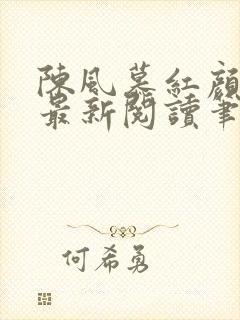 陳風慕紅顏
最新閱讀筆
何希勇